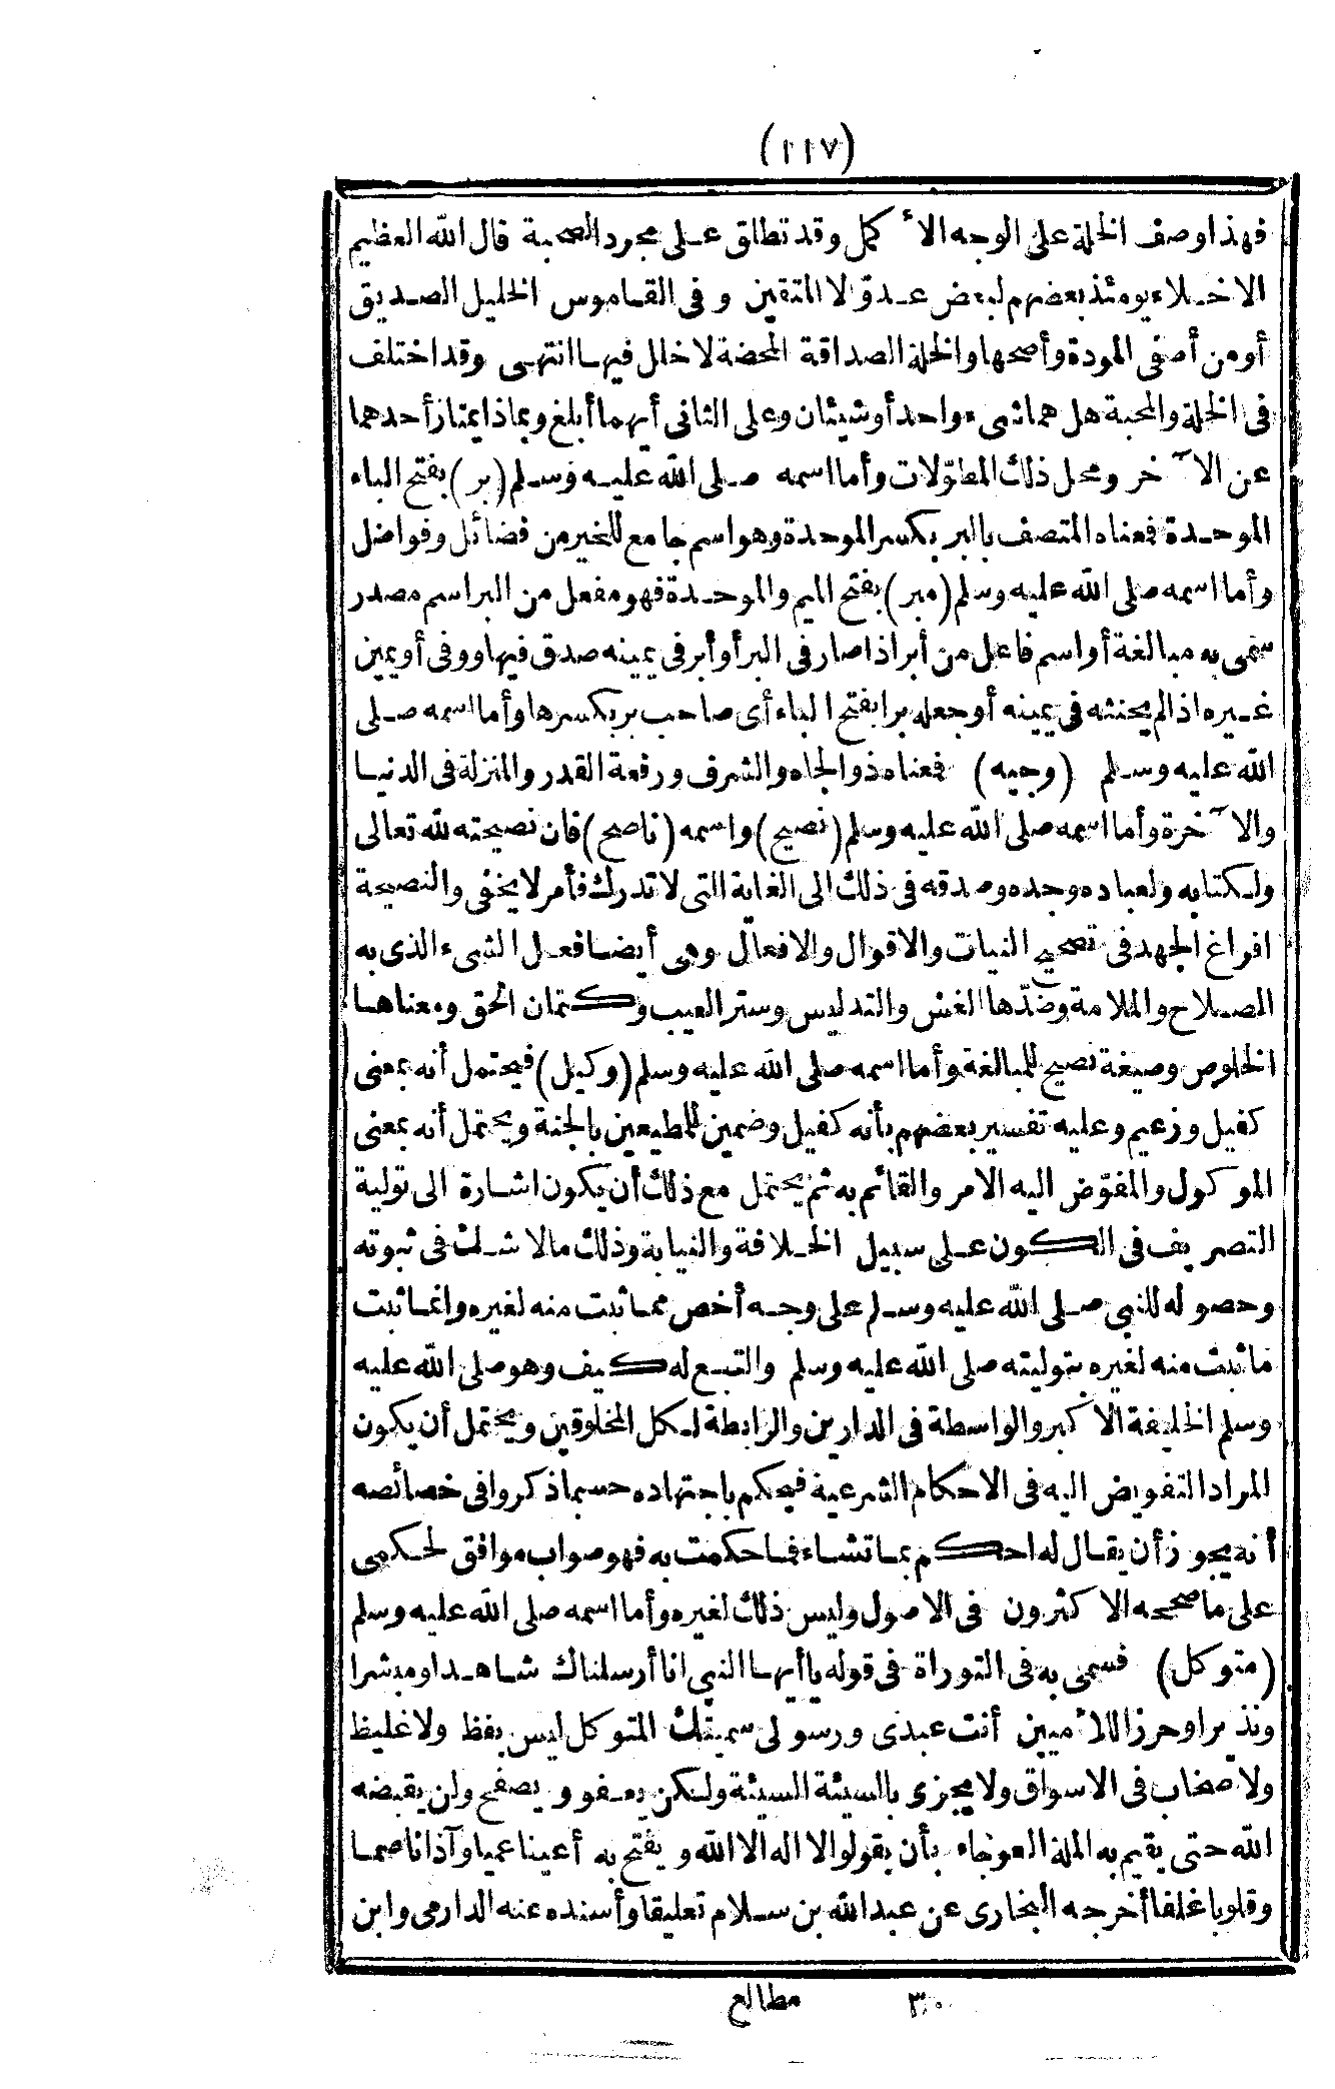 (١١٧)
فهذا وصف الخلة على الوجه الأكمل وقد تطلق على مجرد الصحبة قال الله العظيم
الاخلاء يومئذ بعضهم لبعض عدوّ الا المتقين وفى القاموس الخليل الصديق
أو من أصفى المودة وأصحها والخلة الصداقة المحضة لا خلل فيها انتهى وقد اختلف
فى الخلة والمحبة هل هما شىء واحد أو شيئان وعلى الثانى أيهما أبلغ وبماذا يمتاز أحدهما
عن الآخر ومحل ذلك المطوّلات وأما اسمه صلى الله عليه وسلم (بر) بفتح الباء
الموحدة فمعناه المتصف بالبر بكسر الموحدة وهو اسم جامع للخير من فضائل وفواضل
وأما اسمه صلى الله عليه وسلم (مبر) بفتح الميم والموحدة فهو مفعل من البر اسم مصدر
سمى به مبالغة أو اسم فاعل من أبر اذا صار فى البر أو أبر فى يمينه صدق فيها ووفى أو يمين
غيره اذا لم يحنثه فى يمينه أو جعله برا بفتح الباء أى صاحب بر بكسرها وأما اسمه صلى
الله عليه وسلم (وجيه) فمعناه ذو الجاه والشرف ورفعة القدر والمنزلة فى الدنيا
والآخرة وأما اسمه صلى الله عليه وسلم (نصيح) واسمه (ناصح) فان نصيحته لله تعالى
ولكتابه ولعباده وجده وصدقه فى ذلك الى الغاية التى لا تدرك فأمر لا يخفى والنصيحة
افراغ الجهد فى تصحيح النيات والاقوال والافعال وهى أيضا فعل الشىء الذى به
الصلاح والملامة وضدّها الغش والتدليس وستر العيب وكتمان الحق ومعناها
الخلوص وصيغة نصيح للمبالغة وأما اسمه صلى الله عليه وسلم (وكيل) فيحتمل أنه بمعنى
كفيل وزعيم وعليه تفسير بعضهم بأنه كفيل وضمين للمطيعين بالجنة ويحتمل أنه بمعنى
الموكول والمفوّض اليه الامر والقائم به ثم يحتمل مع ذلك أن يكون اشارة الى تولية
التصريف فى الكون على سبيل الخلافة والنيابة وذلك مالا شك فى ثبوته
وحصوله للنبى صلى الله عليه وسلم على وجه أخص مما ثبت منه لغيره وانما ثبت
ما ثبت منه لغيره بتوليته صلى الله عليه وسلم والتبع له كيف وهو صلى الله عليه
وسلم الخليفة الاكبر والواسطة فى الدارين والرابطة لكل المخلوقين ويحتمل أن يكون
المراد التفويض اليه فى الاحكام الشرعية فيحكم باجتهاده حسبما ذكروا فى خصائصه
أنه يجوز أن يقال له احكم بما تشاء فما حكمت به فهو صواب موافق لحكمى
على ما صححه الاكثرون فى الاصول وليس ذلك لغيره وأما اسمه صلى الله عليه وسلم
(متوكل) فسمى به فى التوراة فى قوله يا أيها النبى انا أرسلناك شاهدا ومبشرا
ونذيرا وحرزا للأميين أنت عبدى ورسولى سميتك المتوكل ليس بفظ ولا غليظ
ولا صخاب فى الاسواق ولا يجزى بالسيئة السيئة ولكن يعفو ويصفح ولن يقبضه
الله حتى يقيم به الملة العوجاء بأن يقولوا لا اله الا الله ويفتح به أعينا عميا وآذانا صما
وقلوبا غلفا أخرجه البخارى عن عبد الله بن سلام تعليقا وأسنده عنه الدارمى وابن
٣٠ مطالع